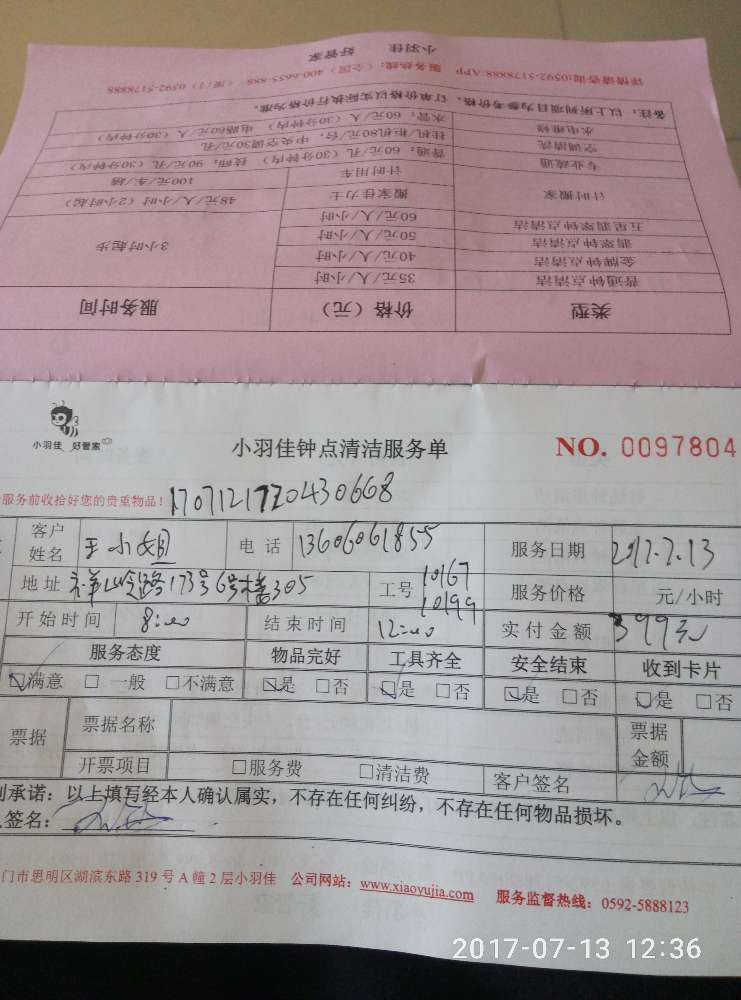 小羽佳 好管家
详情请咨询:0592-5178888/APP 服务热线:(全国)400-6655-888 (厦门)0592-5178888
备注:以上所列项目为参考价格,订单价格以实际执行价格为准。
水电维修 水管:60元/人(30分钟内) 电路60元/人(30分钟内)
空调清洗 挂机/柜机80元/台,中央空调30元/孔
专业疏通 普通:60元/孔(30分钟内) 技师:90元/孔(30分钟内)
计时用车 100元/车/趟
计时搬家 搬家佳力士 48元/人/小时(2小时起)
五星翡翠钟点清洁 60元/人/小时
翡翠钟点清洁 50元/人/小时
金牌钟点清洁 40元/人/小时
普通钟点清洁 35元/人/小时
3小时起步
类型 价格(元) 服务时间
小羽佳 好管家
小羽佳钟点清洁服务单
NO. 0097804
服务前收拾好您的贵重物品!
17071217204306​68
客户姓名 王小姐 电话 13606061855 服务日期 2017.7.13
地址 祥岭路173号6号楼305 工号 10167 10199 服务价格 元/小时
开始时间 8:00 结束时间 12:00 实付金额 399元
服务态度 物品完好 工具齐全 安全结束 收到卡片
☑满意 □一般 □不满意 ☑是 □否 ☑是 □否 ☑是 □否 ☑是 □否
票据 票据名称 票据金额
开票项目 □服务费 □清洁费 客户签名
承诺:以上填写经本人确认属实,不存在任何纠纷,不存在任何物品损坏。
签名:
门市思明区湖滨东路319号A幢2层小羽佳 公司网站:www.xiaoyujia.com 服务监督热线:0592-5888123
2017-07-13 12:36